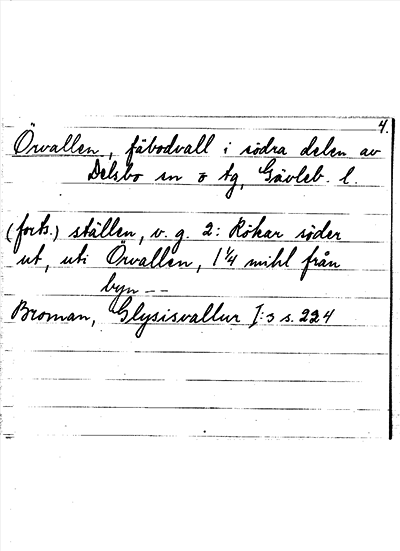 4.
Örvallen, fäbodvall i södra delen av
Delsbo sn o tg, Gävleb. l.
(forts.) ställen, v. g. 2: Rökar söder
ut, uti Örvallen, 1 1/4 mihl från
byn --
Broman, Glysisvallur I:3 s. 224